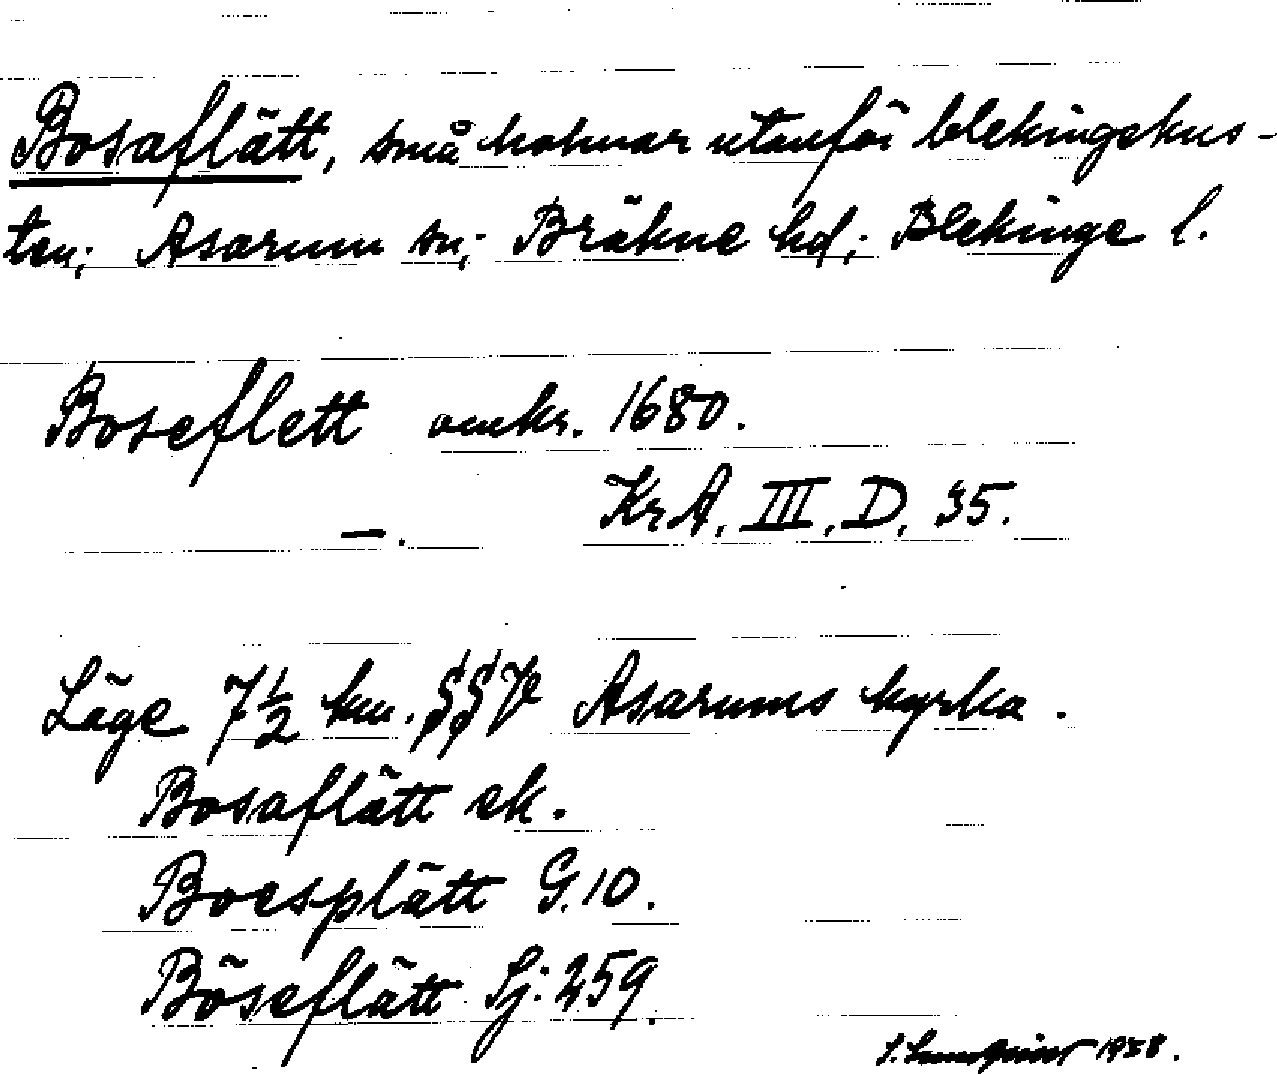 Bosaflätt, små holmar utanför blekingskus-
ten; Asarum sn; Bräkne hd; Blekinge l.
Boseflett omkr. 1680.
—. KrA, III, D, 35.
Läge 7½ km. §§V Asarums kyrka.
Bosaflätt ek.
Boesplätt G. 10.
Böseflätt Sj: 259.